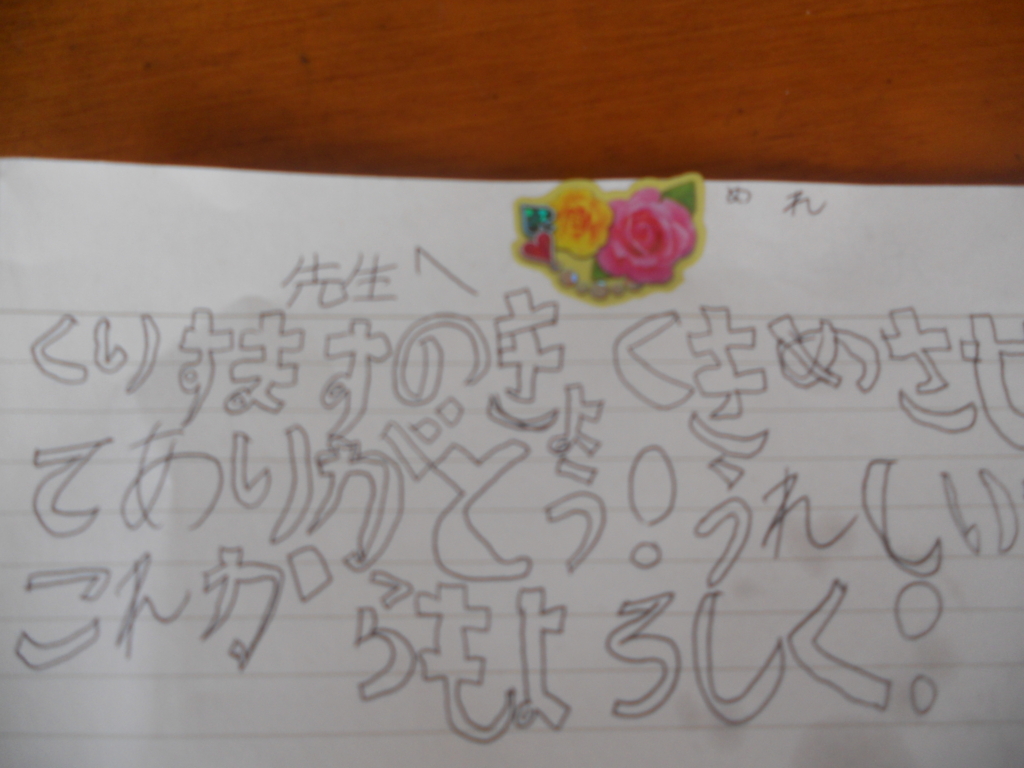 先生へ
くりすますのきょくきめさせ
てありがとう!うれしい
これからもよろしく!